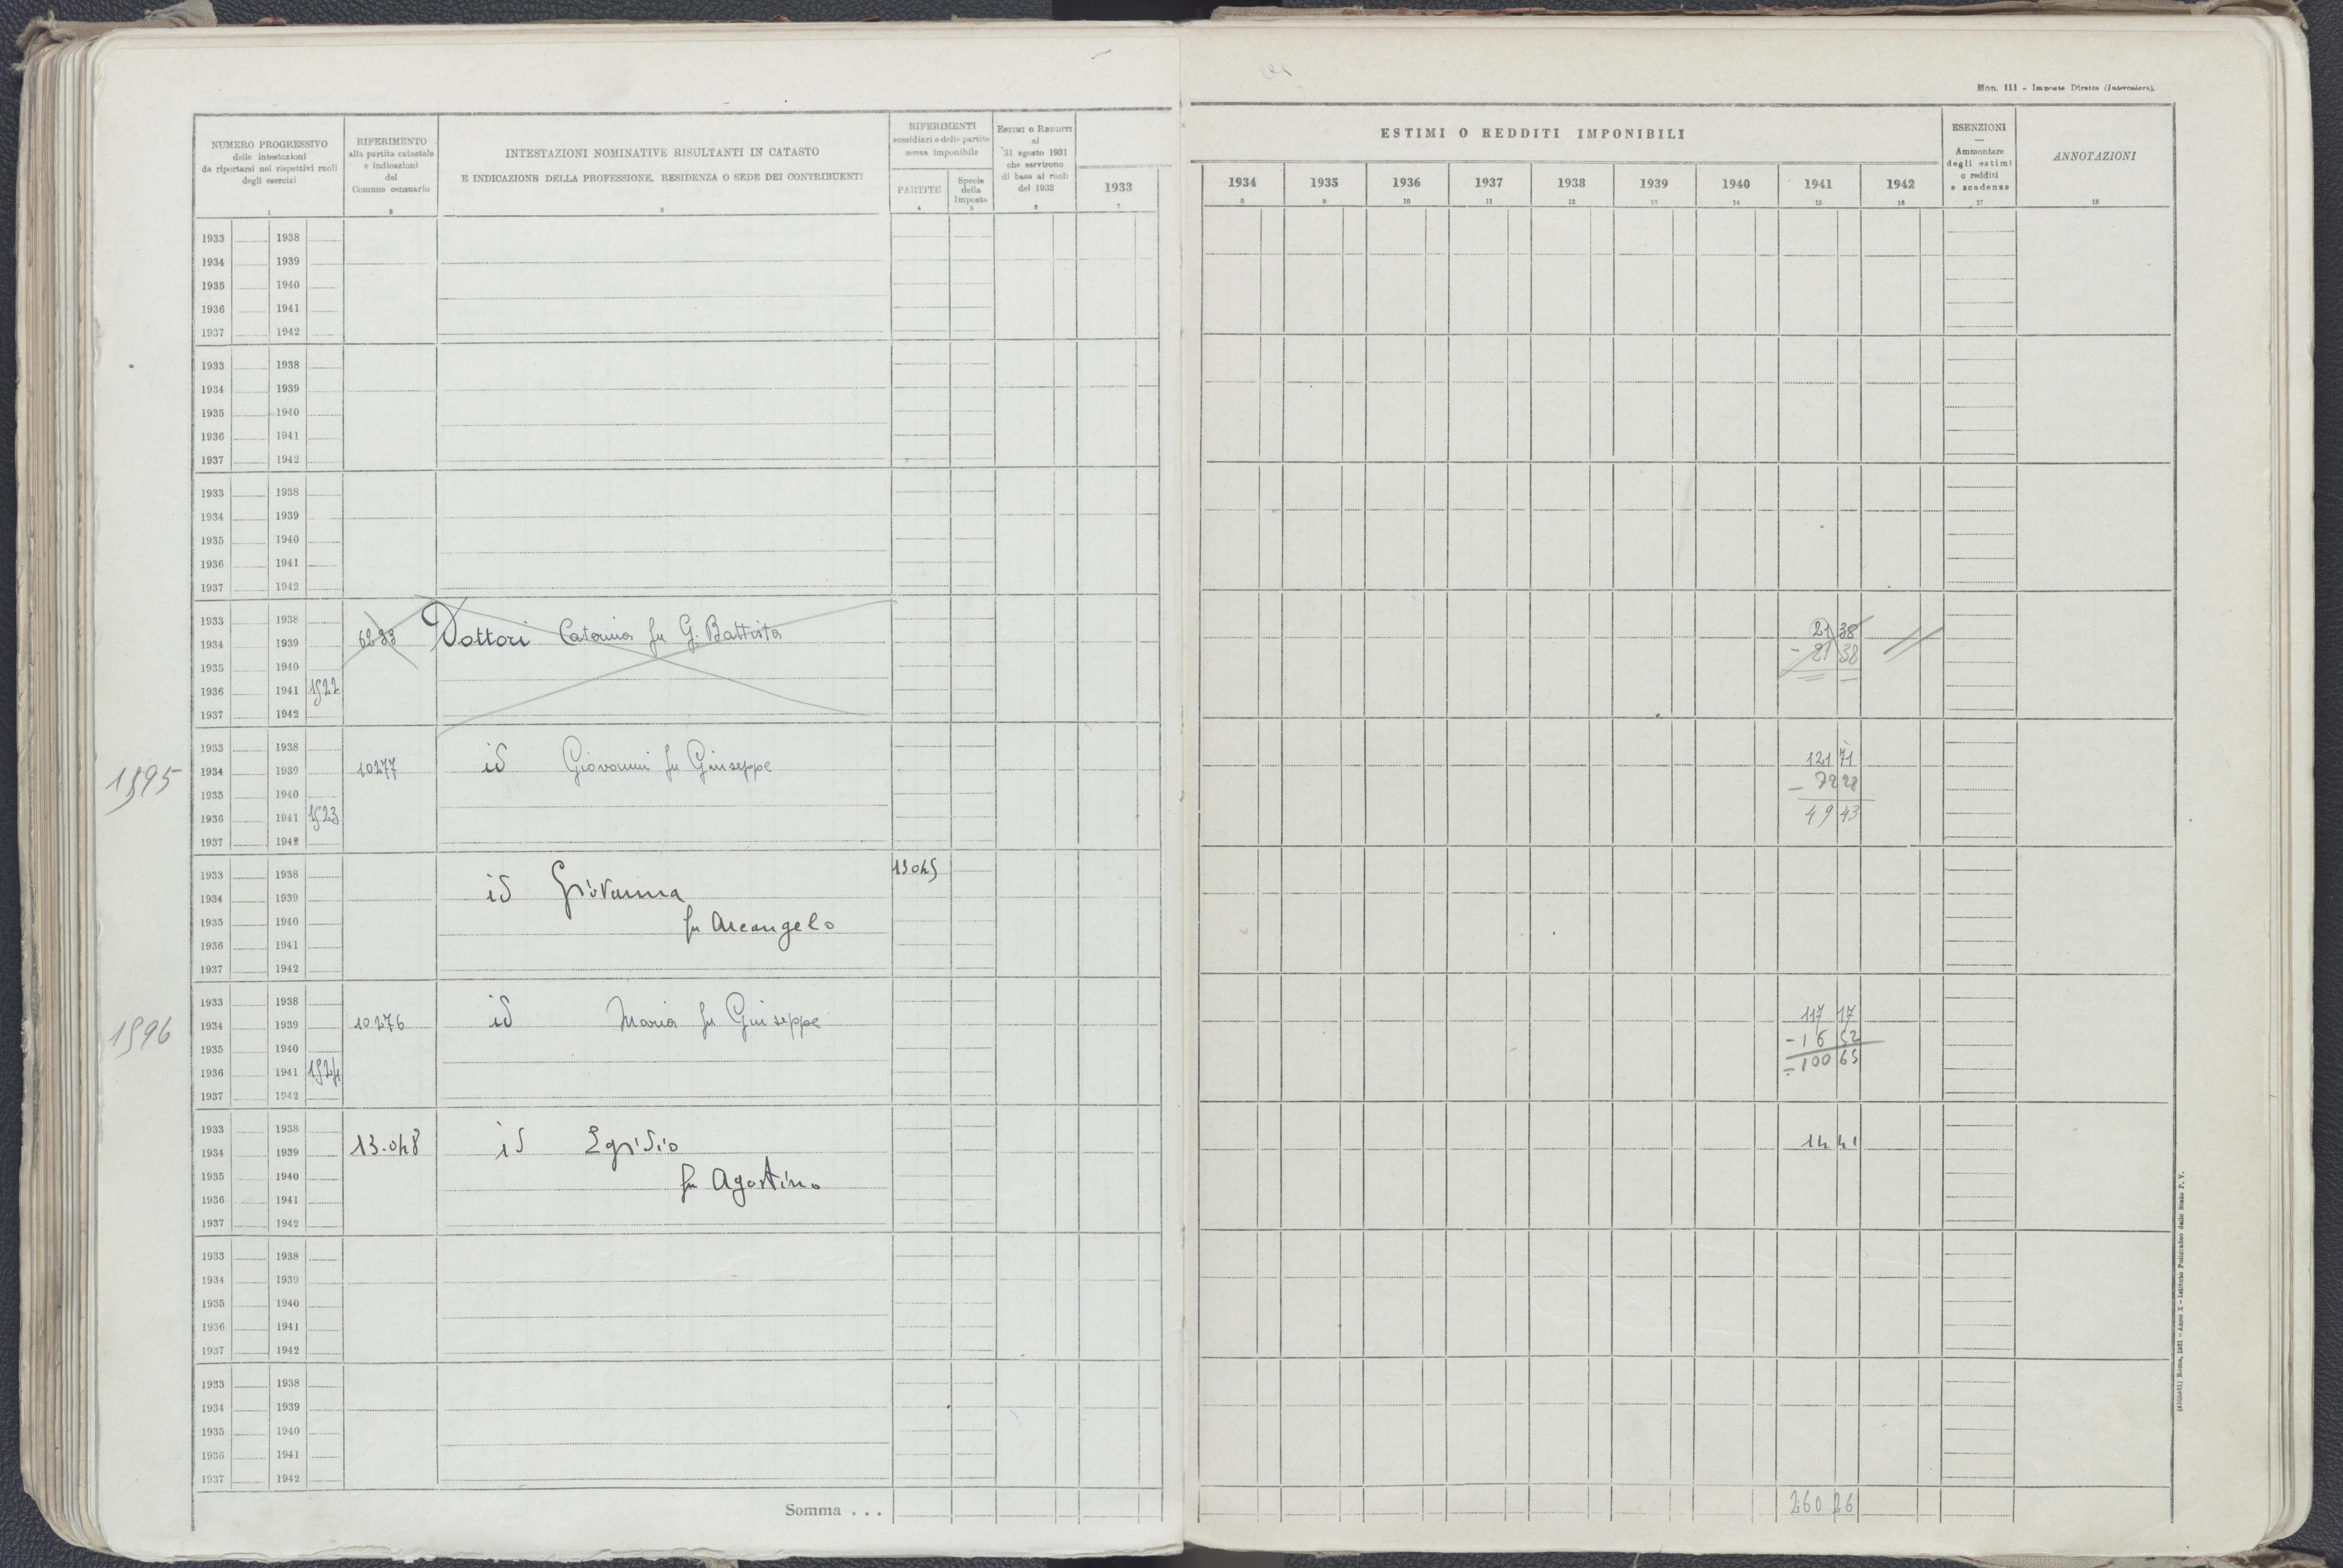 Mon. 111 - Imposte Dirette (Intercalare).
NUMERO PROGRESSIVO
delle intestazioni
da riportarsi nei rispettivi ruoli
degli esercizi
1
RIFERIMENTO
alla partita catastale
e indicazioni
del
Comune censuario
2
INTESTAZIONI NOMINATIVE RISULTANTI IN CATASTO
E INDICAZIONE DELLA PROFESSIONE, RESIDENZA O SEDE DEI CONTRIBUENTI
3
RIFERIMENTI
sussidiari e delle partite
senza imponibile
PARTITE
4
Specie
della
Imposta
5
ESTIMI O REDDITI
al
31 agosto 1931
che servirono
di base ai ruoli
del 1932
6
1933
7
ESTIMI O REDDITI IMPONIBILI
1934 1935 1936 1937 1938 1939 1940 1941 1942
8 9 10 11 12 13 14 15 16
ESENZIONI
—
Ammontare
degli estimi
o redditi
e scadenze
17
ANNOTAZIONI
18
1933 1938
1934 1939
1935 1940
1936 1941
1937 1942
1933 1938
1934 1939
1935 1940
1936 1941
1937 1942
1933 1938
1934 1939
1935 1940
1936 1941
1937 1942
1933 1938
1934 1939 6233 Dottori Caterina fu G. Battista 21 38
1935 1940 - 21 38
1936 1941 1522
1937 1942
1933 1938
1595 1934 1939 10277 id Giovanni fu Giuseppe 121 71
1935 1940 - 72 28
1936 1941 1523 49 43
1937 1942
1933 1938 13045
1934 1939 id Giovanna
1935 1940 fu Arcangelo
1936 1941
1937 1942
1933 1938
1596 1934 1939 10276 id Maria fu Giuseppe 117 17
1935 1940 - 16 52
1936 1941 1524 = 100 65
1937 1942
1933 1938
1934 1939 13.048 id Egidio 14 41
1935 1940 fu Agostino
1936 1941
1937 1942
1933 1938
1934 1939
1935 1940
1936 1941
1937 1942
1933 1938
1934 1939
1935 1940
1936 1941
1937 1942
Somma . . . 260 26
Roma, 1931 - Anno X - Istituto Poligrafico dello Stato P. V.